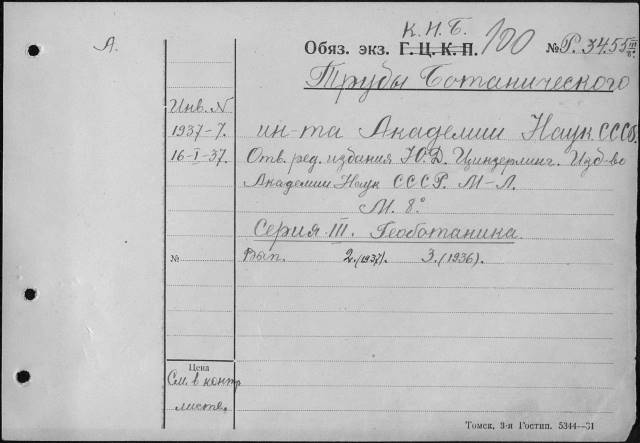 К.Н.Б.
А.
Обяз. экз. Г. Ц. К. П. 100 № Р. 3455 III
Труды Ботанического
Инв. N
1937-7. ин-та Академии Наук СССР.
16-I-37. Отв. ред. издания Ю.Д. Цинзерлинг. Изд-во
Академии Наук СССР. М-Л.
М. 8°
Серия III. Геоботаника.
№ Вып. 2.(1937). 3.(1936).
Цена
См. в контр.
листке.
Томск, 3-я Гостип. 5344—31